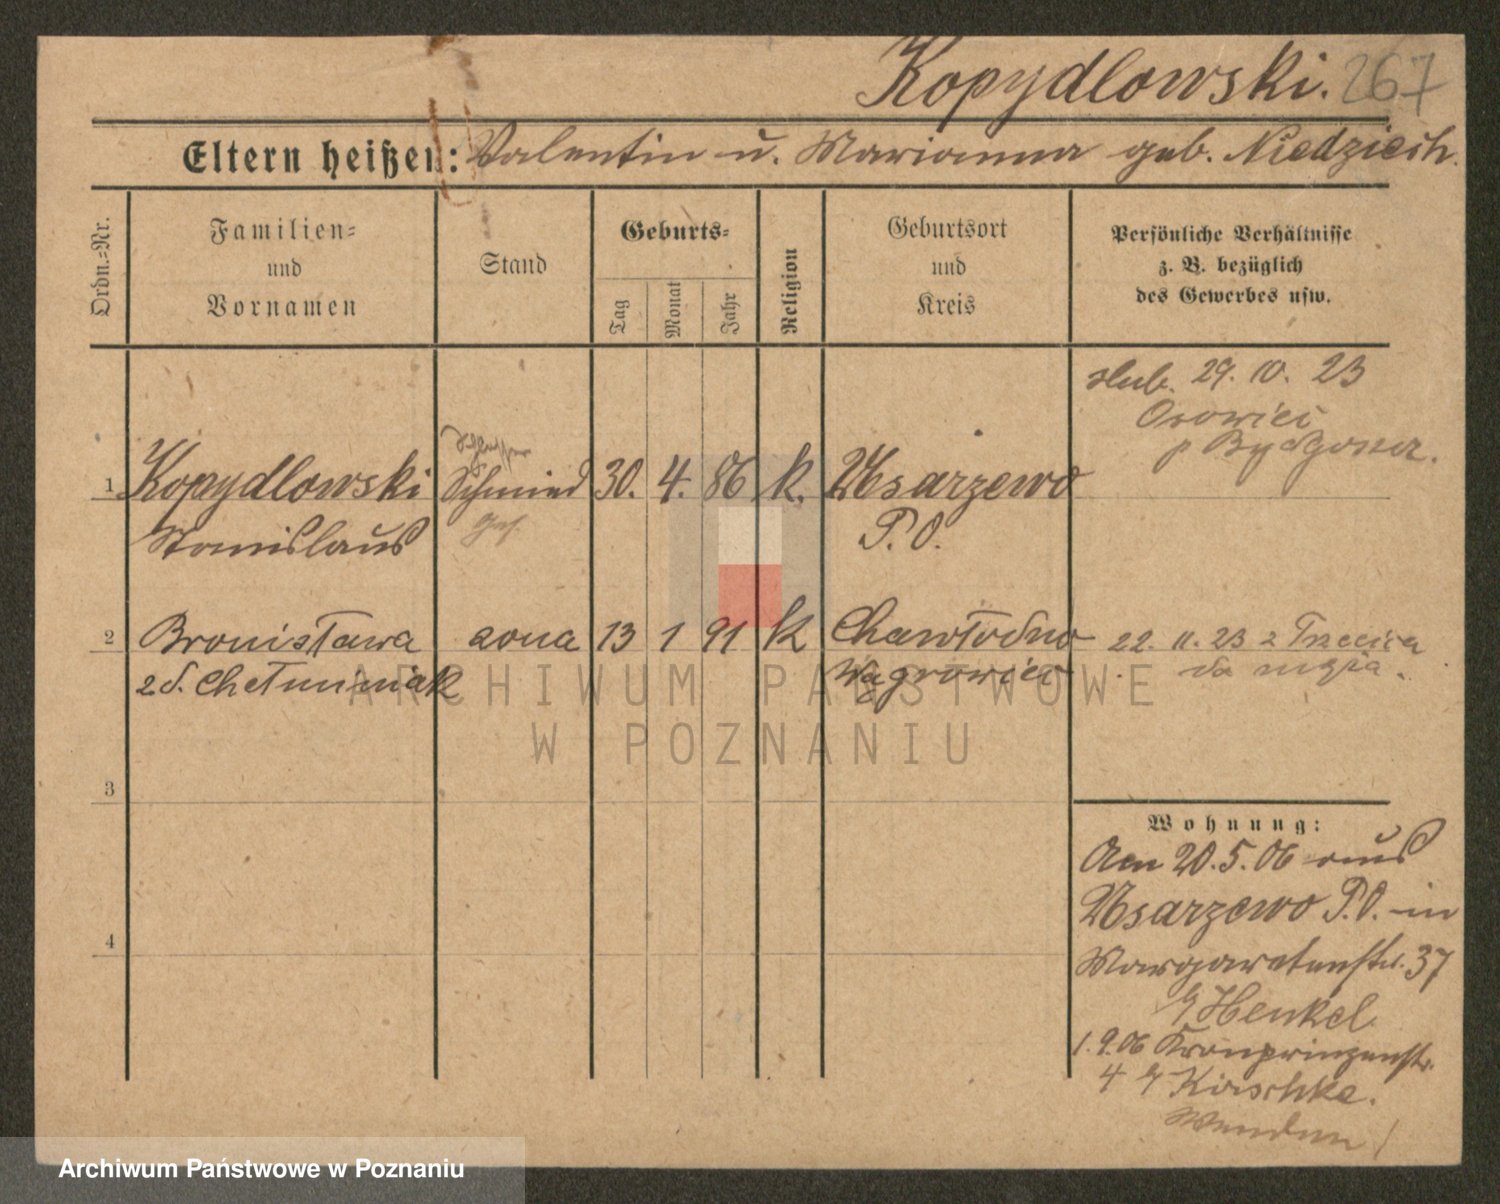 Kopydlowski. 267
Eltern heißen: Valentin u. Marianna geb. Niedziech.
Ordn.-Nr.
Familien-
und
Vornamen
Stand
Geburts-
Tag
Monat
Jahr
Religion
Geburtsort
und
Kreis
Persönliche Verhältnisse
z. B. bezüglich
des Gewerbes usw.
ślub. 29. 10. 23
Osowiec
p Bydgoszcz.
Schlosser
1 Kopydlowski Schmied 30. 4. 86 k. Usarzewo
Ges.
Stanislaus P. O.
2 Bronisława żona 13 1 91 k Chawłodno 22. 11. 23 z
z d. Chełminiak Wągrowiec do męża.
3
4
Wohnung:
Am 20.5.06 aus
Usarzewo P.O. in
Margaretenstr. 37
b/ Henkel
1.9.06 Kronprinzenstr.
4 b/ Kirschke.
ARCHIWUM PAŃSTWOWE
W POZNANIU
Archiwum Państwowe w Poznaniu